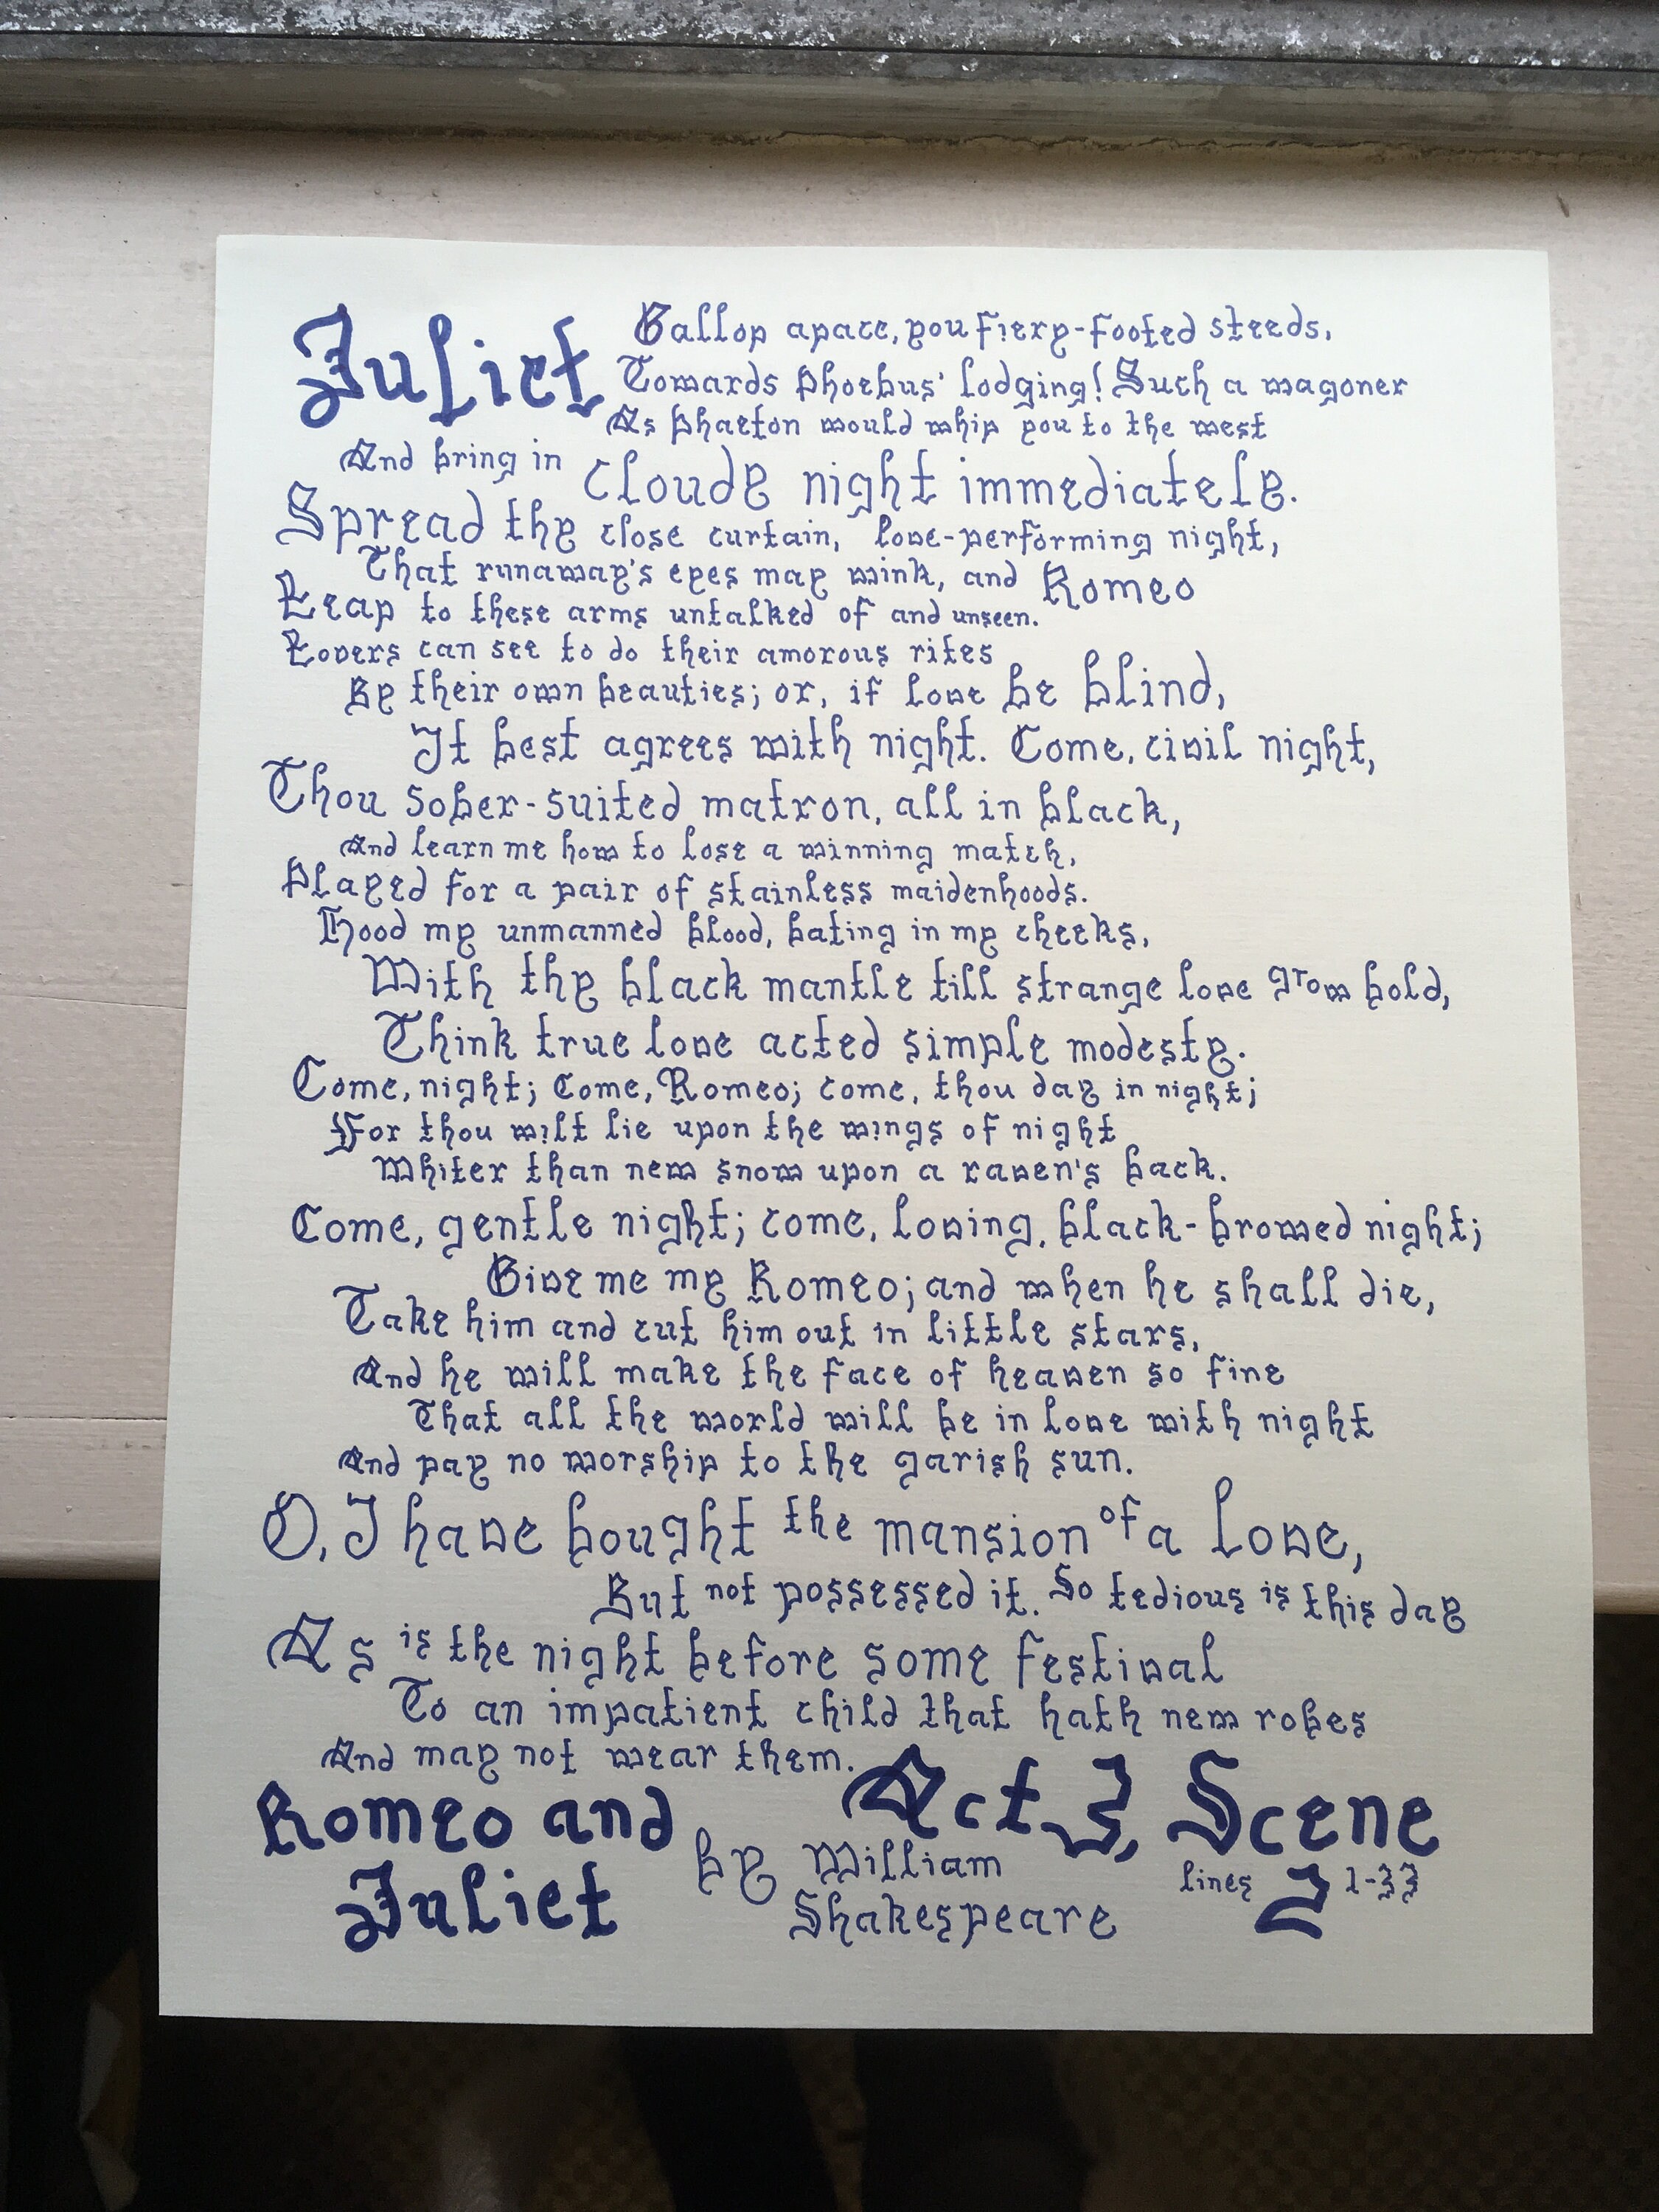 Juliet
Gallop apace, you fiery-footed steeds,
Towards Phoebus' lodging! Such a wagoner
As Phaeton would whip you to the west
And bring in cloudy night immediately.
Spread thy close curtain, love-performing night,
That runaway's eyes may wink, and Romeo
Leap to these arms untalked of and unseen.
Lovers can see to do their amorous rites
By their own beauties; or, if love be blind,
It best agrees with night. Come, civil night,
Thou sober-suited matron, all in black,
And learn me how to lose a winning match,
Played for a pair of stainless maidenhoods.
Hood my unmanned blood, bating in my cheeks,
With thy black mantle till strange love grow bold,
Think true love acted simple modesty.
Come, night; Come, Romeo; come, thou day in night;
For thou wilt lie upon the wings of night
Whiter than new snow upon a raven's back.
Come, gentle night; come, loving, black-browed night;
Give me my Romeo; and when he shall die,
Take him and cut him out in little stars,
And he will make the face of heaven so fine
That all the world will be in love with night
And pay no worship to the garish sun.
O, I have bought the mansion of a love,
But not possessed it. So tedious is this day
As is the night before some festival
To an impatient child that hath new robes
And may not wear them.
Romeo and Juliet
by William Shakespeare
Act 3, Scene 2
lines 1-33